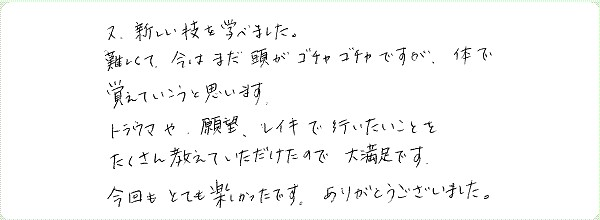 又、新しい技を学べました。
難しくて、今はまだ頭がゴチャゴチャですが、体で
覚えていこうと思います。
トラウマや、願望、レイキで行いたいことを
たくさん教えていただけたので大満足です。
今回もとても楽しかったです。ありがとうございました。